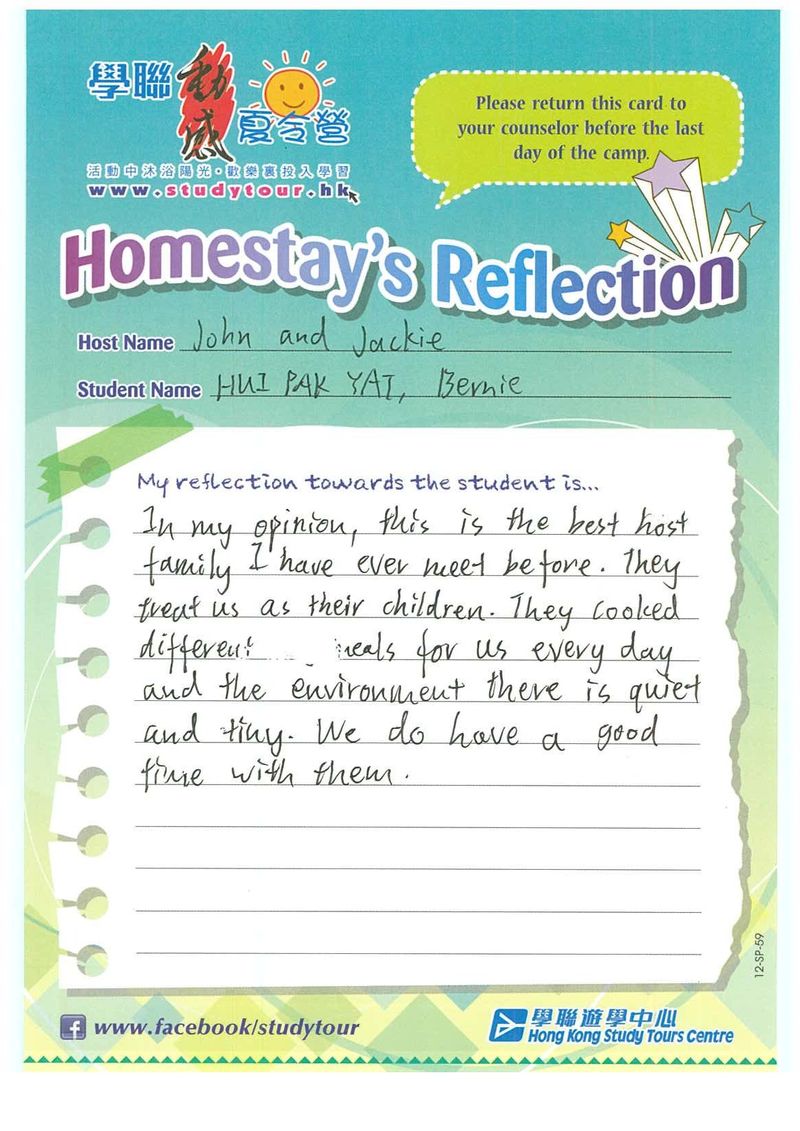 學聯動感夏令營
活動中沐浴陽光·歡樂裏投入學習
www.studytour.hk
Please return this card to
your counselor before the last
day of the camp.
Homestay's Reflection
Host Name John and Jackie
Student Name HUI PAK YAT, Bernie
My reflection towards the student is...
In my opinion, this is the best host
family I have ever meet before. They
treat us as their children. They cooked
different meals for us every day
and the environment there is quiet
and tiny. We do have a good
time with them.
12-SP-59
f www.facebook/studytour
學聯遊學中心
Hong Kong Study Tours Centre